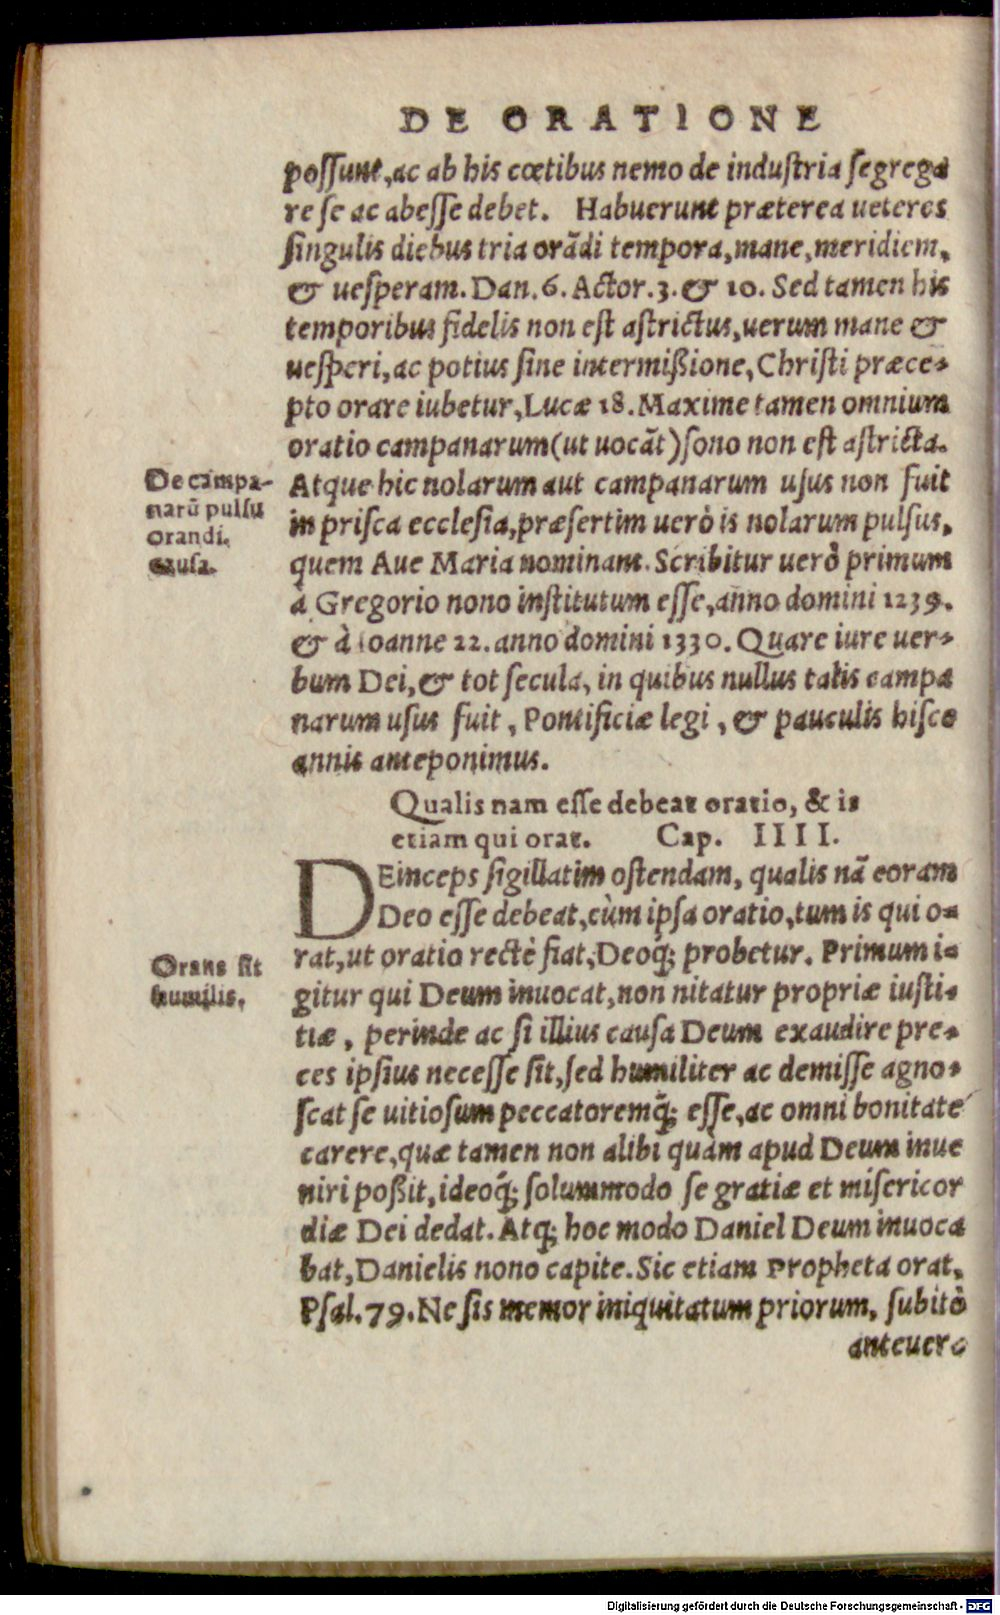 DE ORATIONE
possunt, ac ab his cœtibus nemo de industria segrega
re se ac abesse debet. Habuerunt præterea ueteres
singulis diebus tria orãdi tempora, mane, meridiem,
& uesperam. Dan. 6. Actor. 3. & 10. Sed tamen his
temporibus fidelis non est astrictus, uerum mane &
uesperi, ac potius sine intermißione, Christi præce-
pto orare iubetur, Lucæ 18. Maxime tamen omnium
oratio campanarum (ut uocãt) sono non est astricta.
De campa-
narũ pulsu
orandi
causa.
Atque hic nolarum aut campanarum usus non fuit
in prisca ecclesia, præsertim uerò is nolarum pulsus,
quem Aue Maria nominant. Scribitur uerò primum
à Gregorio nono institutum esse, anno domini 1239.
& à Ioanne 22. anno domini 1330. Quare iure uer-
bum Dei, & tot secula, in quibus nullus talis campa
narum usus fuit, Pontificiæ legi, & pauculis hisce
annis anteponimus.
Qualis nam esse debeat oratio, & is
etiam qui orat. Cap. IIII.
DEinceps sigillatim ostendam, qualis nã coram
Deo esse debeat, cùm ipsa oratio, tum is qui o-
rat, ut oratio rectè fiat, Deoq́; probetur. Primum i-
Orans sit
humilis.
gitur qui Deum inuocat, non nitatur propriæ iusti-
tiæ, perinde ac si illius causa Deum exaudire pre-
ces ipsius necesse sit, sed humiliter ac demisse agno-
scat se uitiosum peccatoremq́; esse, ac omni bonitate
carere, quæ tamen non alibi quàm apud Deum inue
niri poßit, ideoq́; solummodo se gratiæ et misericor
diæ Dei dedat. Atq; hoc modo Daniel Deum inuoca
bat, Danielis nono capite. Sic etiam Propheta orat,
Psal. 79. Ne sis memor iniquitatum priorum, subitò
anteuer-
Digitalisierung gefördert durch die Deutsche Forschungsgemeinschaft - DFG